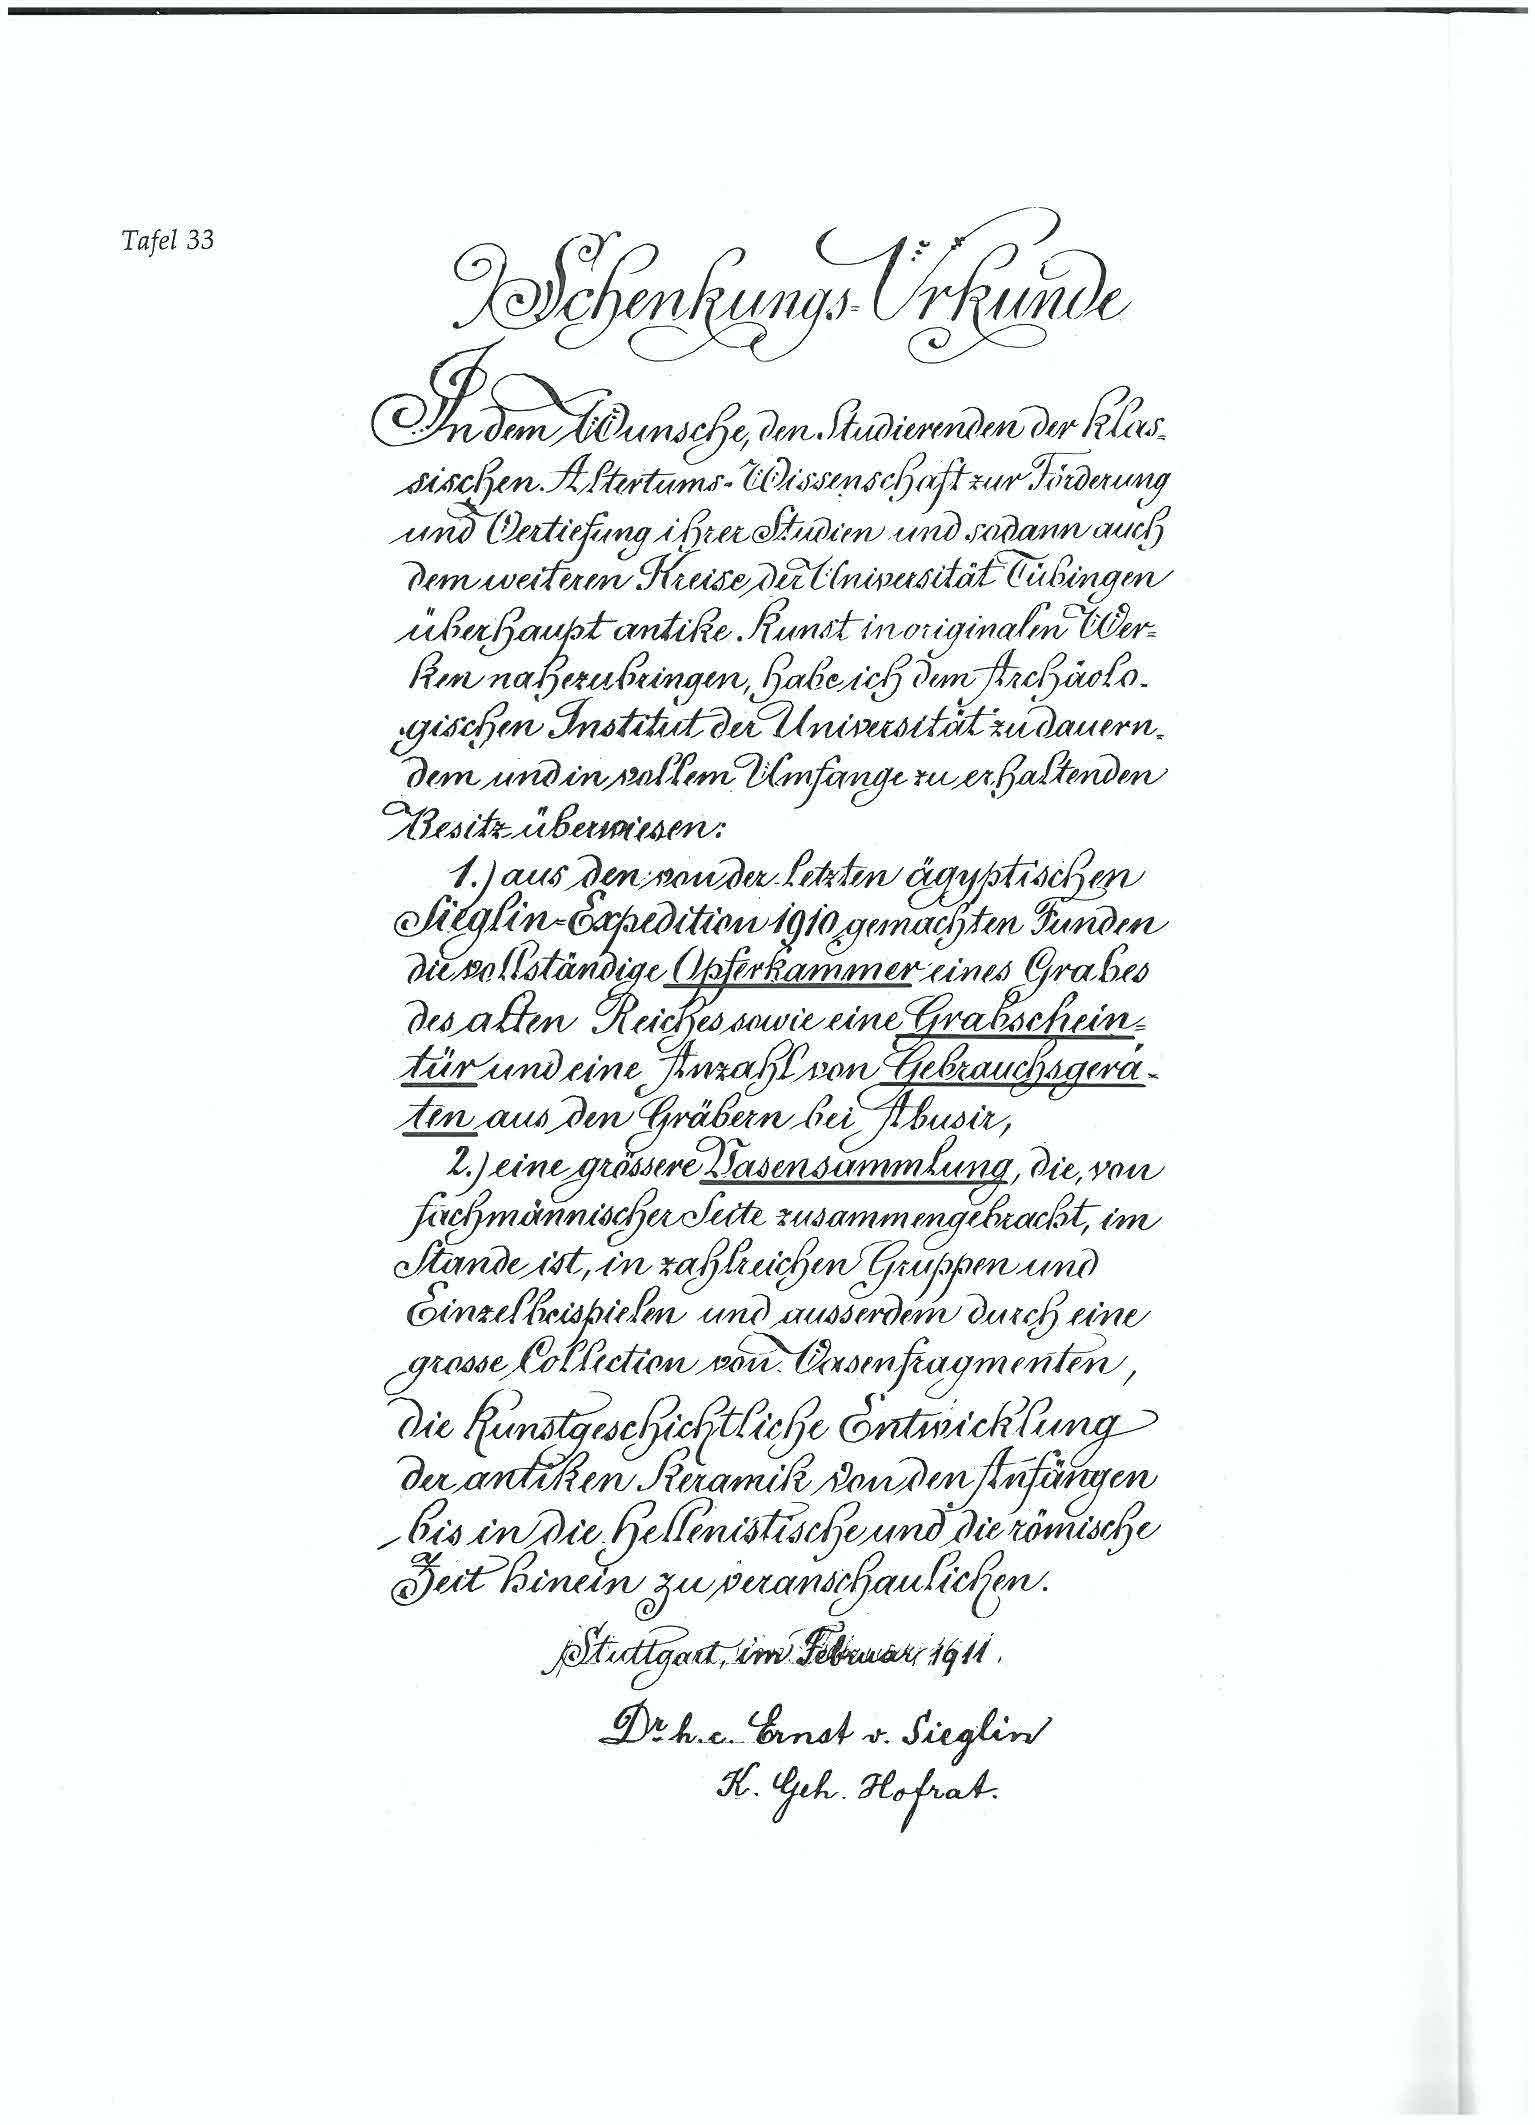 Tafel 33
Schenkungs-Urkunde
In dem Wunsche, den Studierenden der klas-
sischen Altertums-Wissenschaft zur Förderung
und Vertiefung ihrer Studien und sodann auch
dem weiteren Kreise der Universität Tübingen
überhaupt antike Kunst in originalen Wer-
ken nahezubringen, habe ich dem Archäolo-
gischen Institut der Universität zu dauern-
dem und in vollem Umfange zu erhaltenden
Besitz überwiesen:
1.) aus den von der letzten ägyptischen
Sieglin-Expedition 1910 gemachten Funden
die vollständige Opferkammer eines Grabes
des alten Reiches sowie eine Grabschein-
tür und eine Anzahl von Gebrauchsgerä-
ten aus den Gräbern bei Abusir,
2.) eine grössere Vasensammlung, die, von
fachmännischer Seite zusammengebracht, im
Stande ist, in zahlreichen Gruppen und
Einzelbeispielen und ausserdem durch eine
grosse Collection von Vasenfragmenten,
die kunstgeschichtliche Entwicklung
der antiken Keramik von den Anfängen
bis in die hellenistische und die römische
Zeit hinein zu veranschaulichen.
Stuttgart, im Februar 1911.
Dr. h. c. Ernst v. Sieglin
K. Geh. Hofrat.